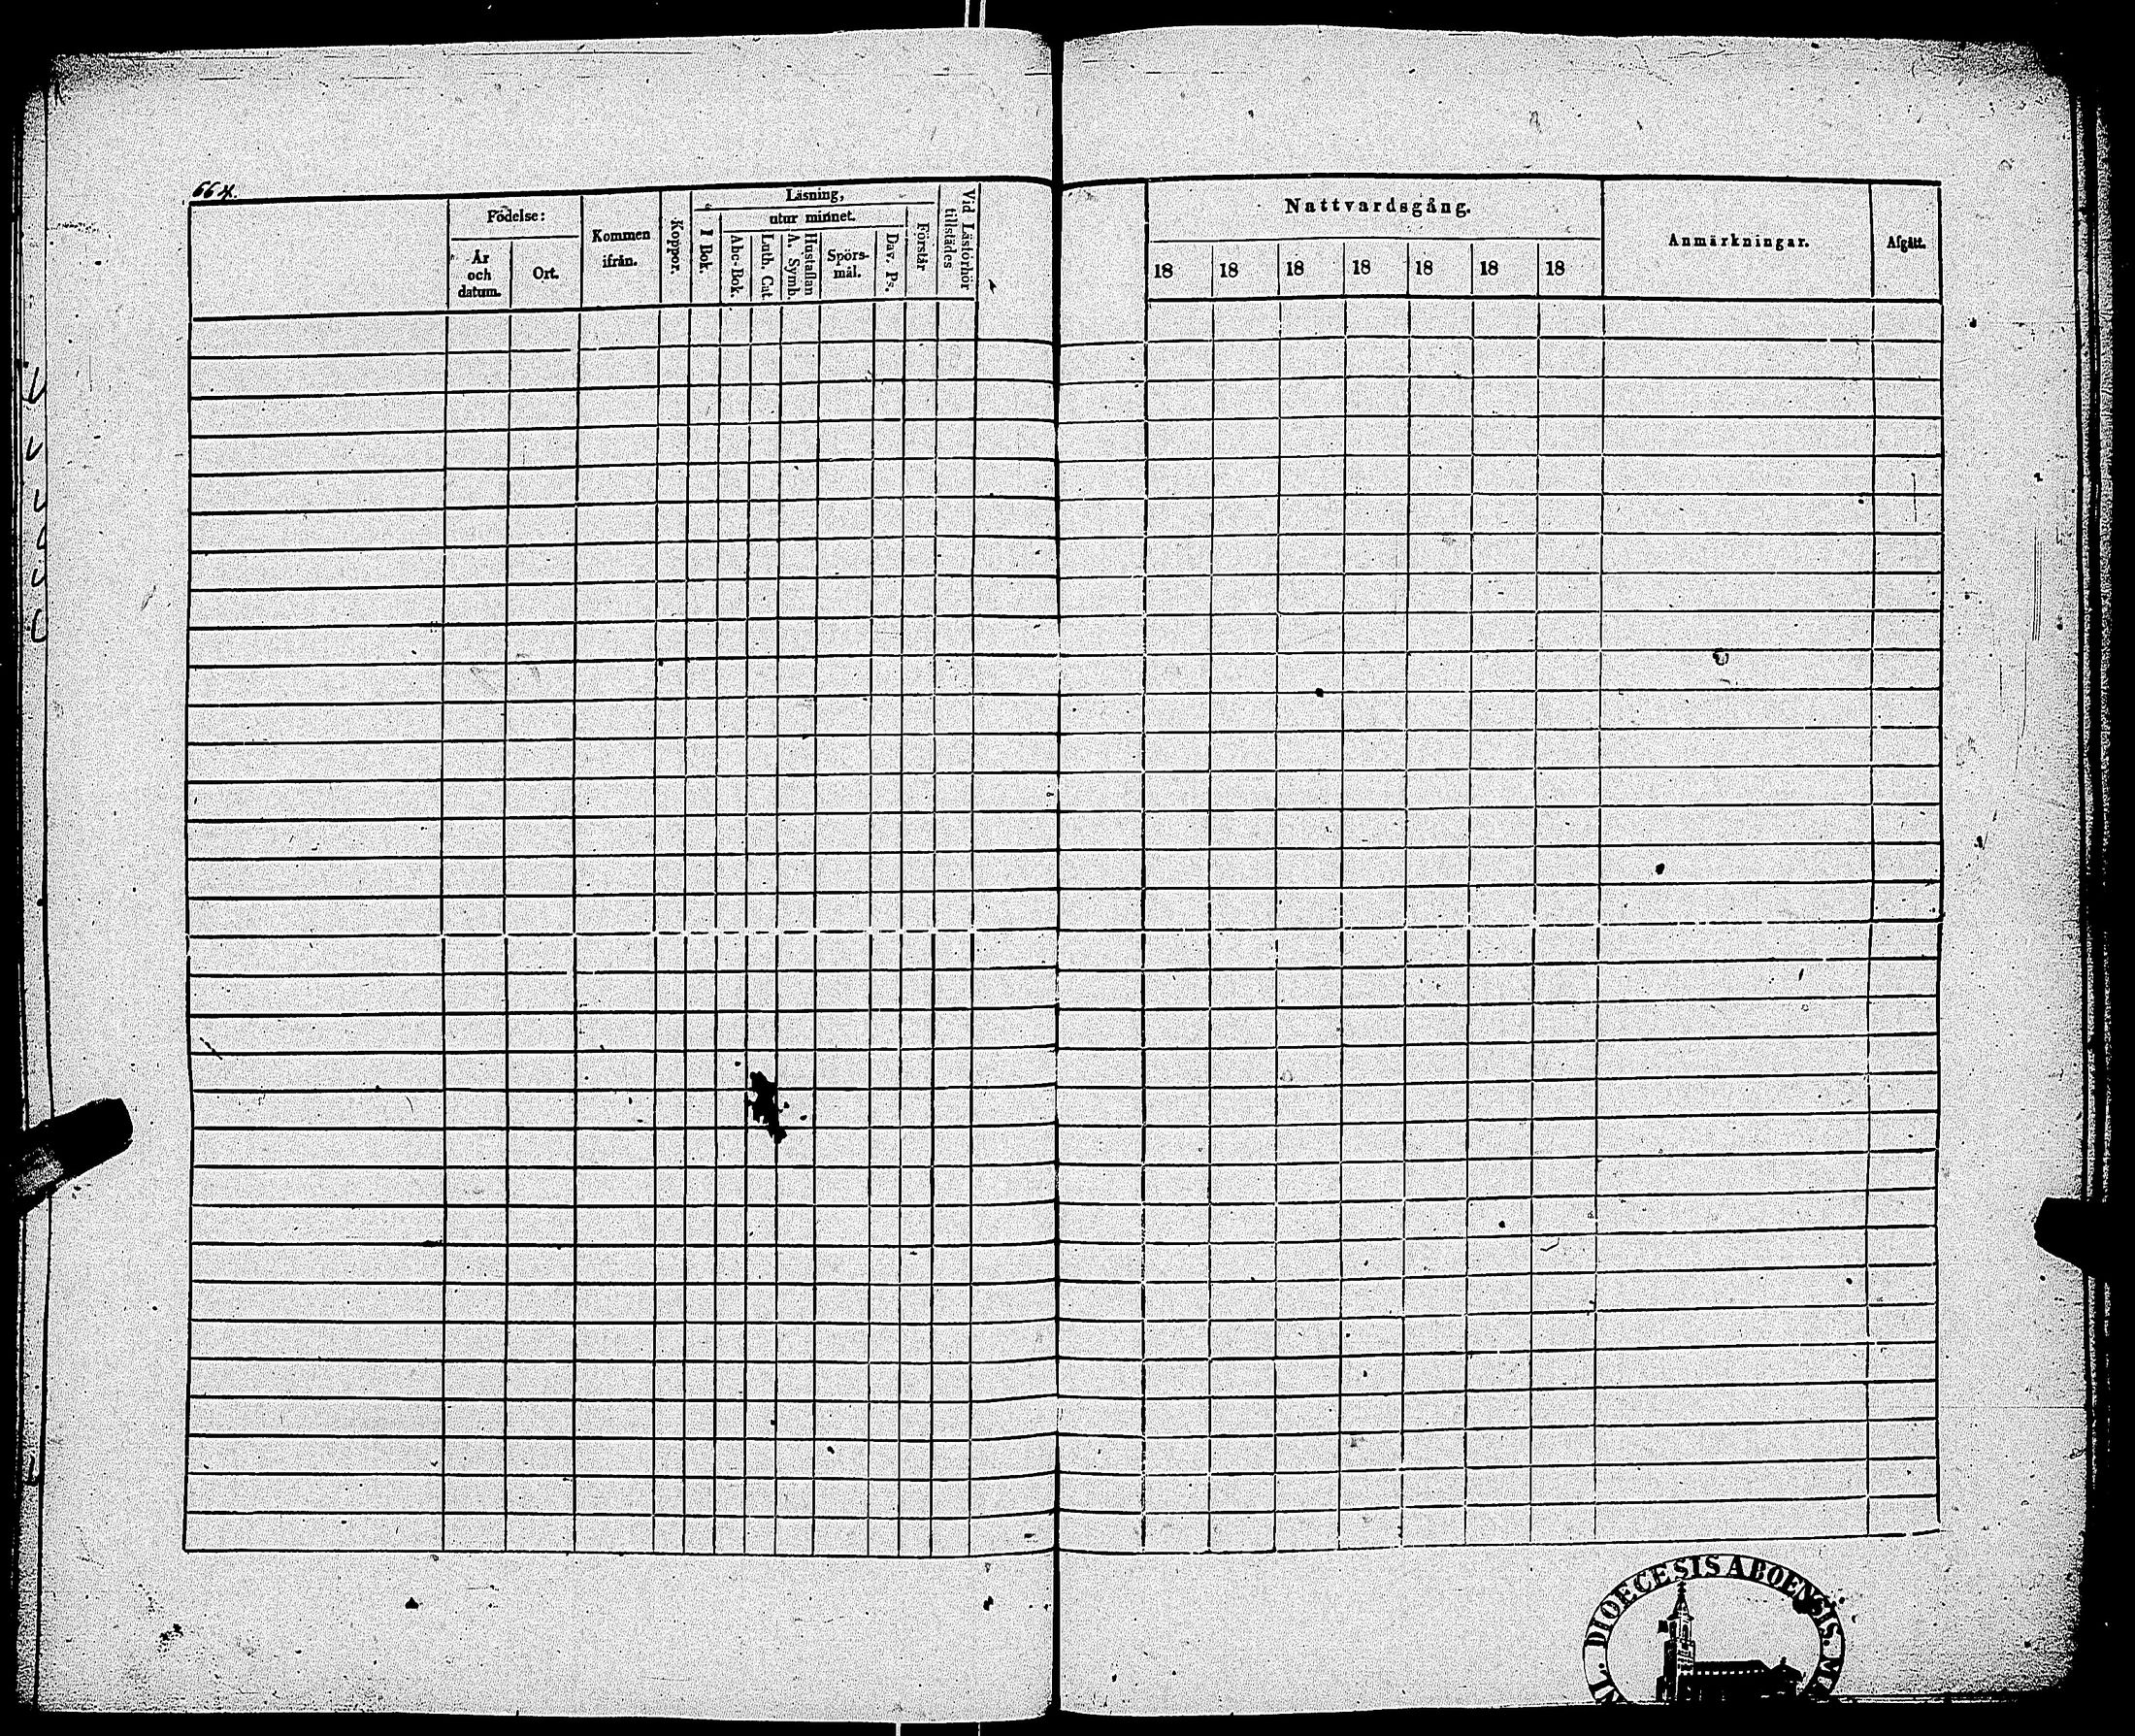 664.
Födelse:
År
och
datum.
Ort.
Kommen
ifrån.
Koppor.
Läsning,
I Bok.
utur minnet.
Abc-Bok.
Luth. Cat.
Hustaflan
A. Symb.
Spörs-
mål.
Dav. Ps.
Förstår
Vid Läsförhör
tillstädes
Nattvardsgång.
18 18 18 18 18 18 18
Anmärkningar.
Afgått.
DIOECESIS ABOENSIS. M